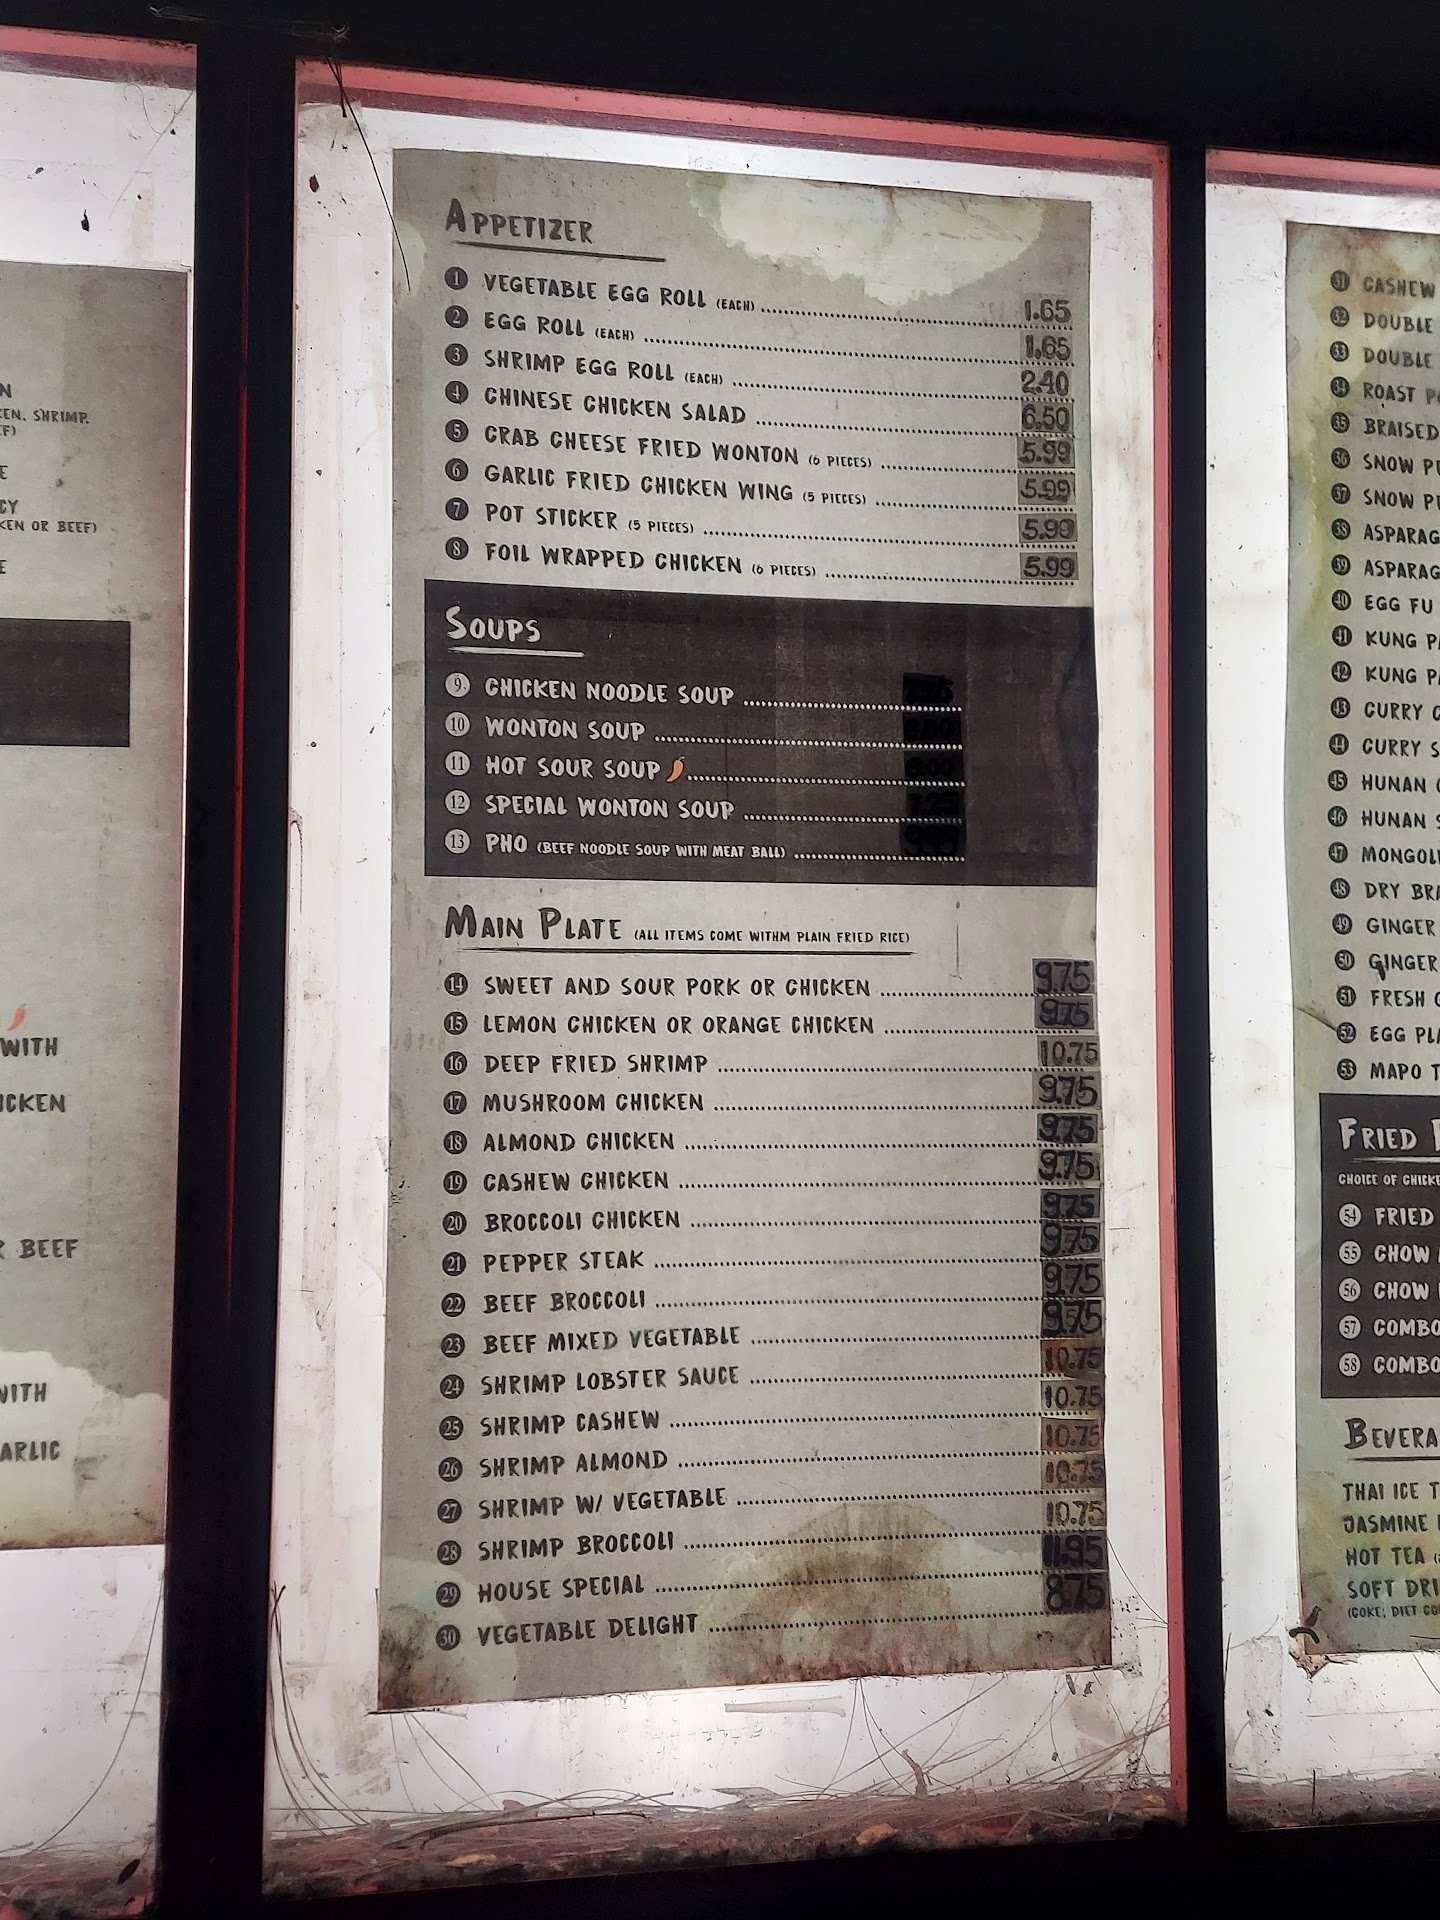 N
KEN, SHRIMP,
EF)
E
CY
KEN OR BEEF)
E
WITH
ICKEN
R BEEF
WITH
ARLIC
APPETIZER
1 VEGETABLE EGG ROLL (EACH) 1.65
2 EGG ROLL (EACH) 1.65
3 SHRIMP EGG ROLL (EACH) 2.40
4 CHINESE CHICKEN SALAD 6.50
5 CRAB CHEESE FRIED WONTON (6 PIECES) 5.99
6 GARLIC FRIED CHICKEN WING (5 PIECES) 5.99
7 POT STICKER (5 PIECES) 5.99
8 FOIL WRAPPED CHICKEN (6 PIECES) 5.99
SOUPS
9 CHICKEN NOODLE SOUP
10 WONTON SOUP
11 HOT SOUR SOUP
12 SPECIAL WONTON SOUP
13 PHO (BEEF NOODLE SOUP WITH MEAT BALL)
MAIN PLATE (ALL ITEMS COME WITHM PLAIN FRIED RICE)
14 SWEET AND SOUR PORK OR CHICKEN 9.75
15 LEMON CHICKEN OR ORANGE CHICKEN 9.75
16 DEEP FRIED SHRIMP 10.75
17 MUSHROOM CHICKEN 9.75
18 ALMOND CHICKEN 9.75
19 CASHEW CHICKEN 9.75
20 BROCCOLI CHICKEN 9.75
21 PEPPER STEAK 9.75
22 BEEF BROCCOLI 9.75
23 BEEF MIXED VEGETABLE 9.75
24 SHRIMP LOBSTER SAUCE 10.75
25 SHRIMP CASHEW 10.75
26 SHRIMP ALMOND 10.75
27 SHRIMP W/ VEGETABLE 10.75
28 SHRIMP BROCCOLI 10.75
29 HOUSE SPECIAL 11.95
30 VEGETABLE DELIGHT 8.75
31 CASHEW
32 DOUBLE
33 DOUBLE
34 ROAST P
35 BRAISED
36 SNOW PE
37 SNOW PE
38 ASPARAG
39 ASPARAG
40 EGG FU
41 KUNG PA
42 KUNG PA
43 CURRY C
44 CURRY S
45 HUNAN
46 HUNAN S
47 MONGOLI
48 DRY BRA
49 GINGER
50 GINGER
51 FRESH G
52 EGG PLA
53 MAPO T
FRIED
CHOICE OF CHICKE
54 FRIED
55 CHOW
56 CHOW
57 COMBO
58 COMBO
BEVERA
THAI ICE T
JASMINE
HOT TEA
SOFT DRI
(COKE, DIET CO